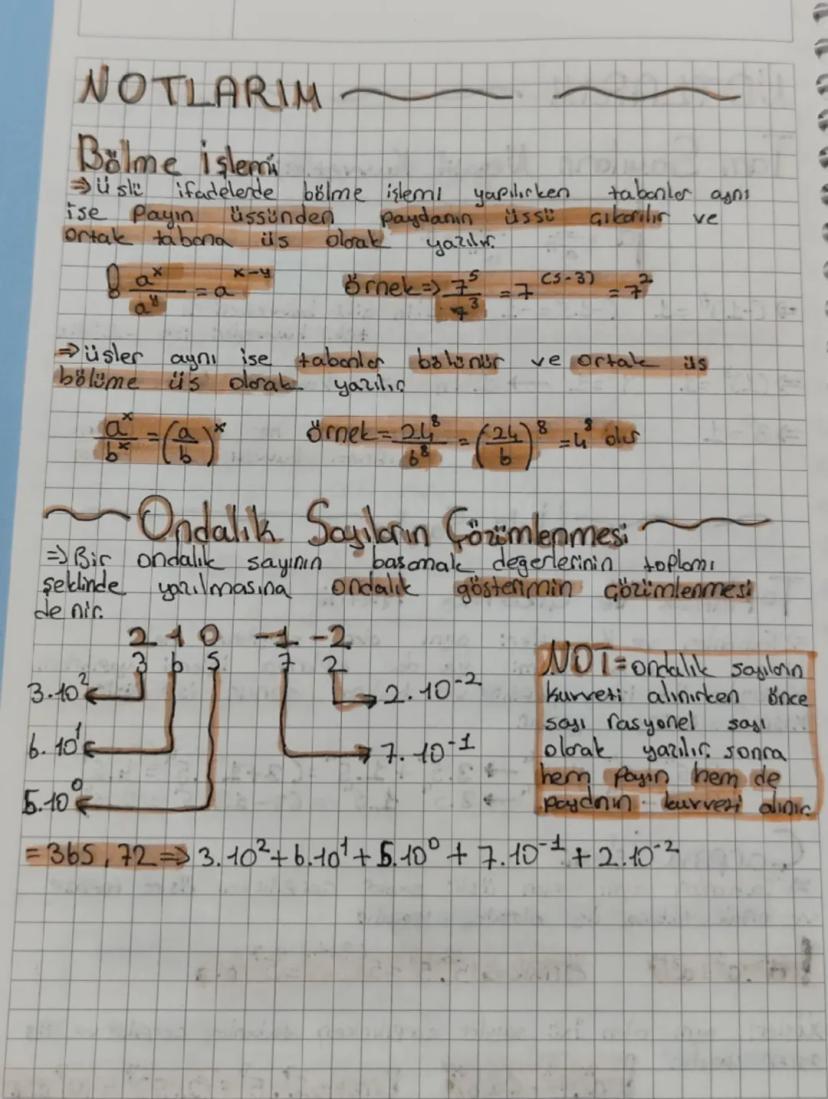 NOTLARIM
Bölme işlemi
⇒ üslü ifadelerde bölme işlemi yapılırken tabanlar aynı
ise payın üssünden paydanın üssü çıkarılır ve
ortak tabana üs olarak yazılır.
a^x / a^y = a^(x-y) örnek ⇒ 7^5 / 7^3 = 7^(5-3) = 7^2
⇒ üsler aynı ise tabanlar bölünür ve ortak üs
bölüme üs olarak yazılır
a^x / b^x = (a/b)^x örnek = 24^8 / 6^8 = (24/6)^8 = 4^8 olur
Ondalık Sayıların Çözümlenmesi
⇒ Bir ondalık sayının basamak değerlerinin toplamı
şeklinde yazılmasına ondalık gösterimin çözümlenmesi
denir.
2 1 0 -1 -2
3 6 5 7 2
3.10^2 2.10^-2
6.10^1 7.10^-1
5.10^0
NOT = ondalık sayıların
kuvveti alınırken önce
sayı rasyonel sayı
olarak yazılır. sonra
hem payın hem de
paydnın kuvveti alınır.
= 365,72 ⇒ 3.10^2 + 6.10^1 + 5.10^0 + 7.10^-1 + 2.10^-2